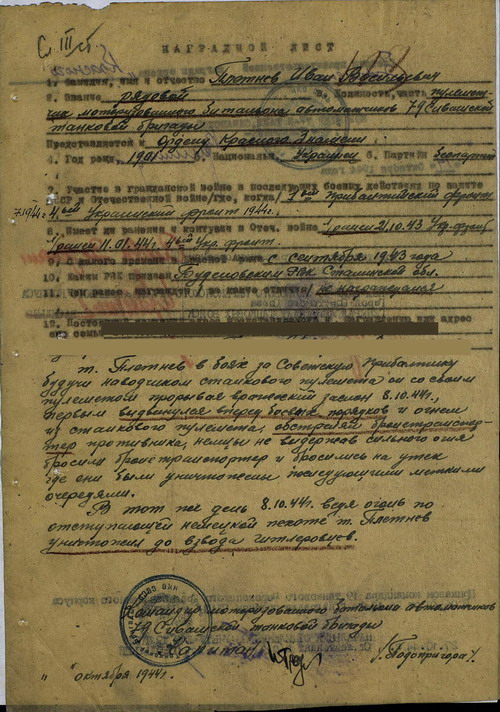 Сл III ст
Красного
НАГРАДНОЙ ЛИСТ
1. Фамилия, имя и отчество Плетнев Иван Васильевич
2. Звание рядовой 3. Должность, часть пулемет-
чик моторизованного батальона автоматчиков 79 Сивашской
танковой бригады
Представляется к Ордену Красного Знамени
4. Год рожд. 1901 5. Национальн. Украинец 6. Партийн беспартий
7. Участие в гражданской войне и последующих боевых действиях по защите
СССР и Отечественной войне/где, когда/ 1-вый Прибалтийский фронт
7.1944г. 4-ый Украинский фронт 1944г.
8. Имеет ли ранения и контузии в Отеч. войне 1/ранен 2.10.43 Укр. фронт
1/ранен 11.01.44г. 4-ый Укр. фронт.
9. С какого времени в Красной Армии с сентября 1943 года
10. Каким РВК призван Буденовским РВК Сталинской обл.
11. Чем ранее награжден/ за какие отличия/ не награждался
12. Постоянный
т. Плетнев в боях за Советскую Прибалтику
будучи наводчиком станкового пулемета он со своим
пулеметом прорывая вражеский заслон 8.10.44г.,
первым выдвинулся вперед боевых порядков и огнем
из станкового пулемета, обстрелял бронетранспор-
тер противника, немцы не выдержав сильного огня
бросили бронетранспортер и бросились на утек
где они были уничтожены последующими меткими
очередями.
В тот же день 8.10.44г. ведя огонь по
отступающей немецкой пехоте т. Плетнев
уничтожил до взвода гитлеровцев.
Командир моторизованного батальона автоматчиков
79 Сивашской танковой бригады
Капитан /Подопригора/
" " октября 1944г.